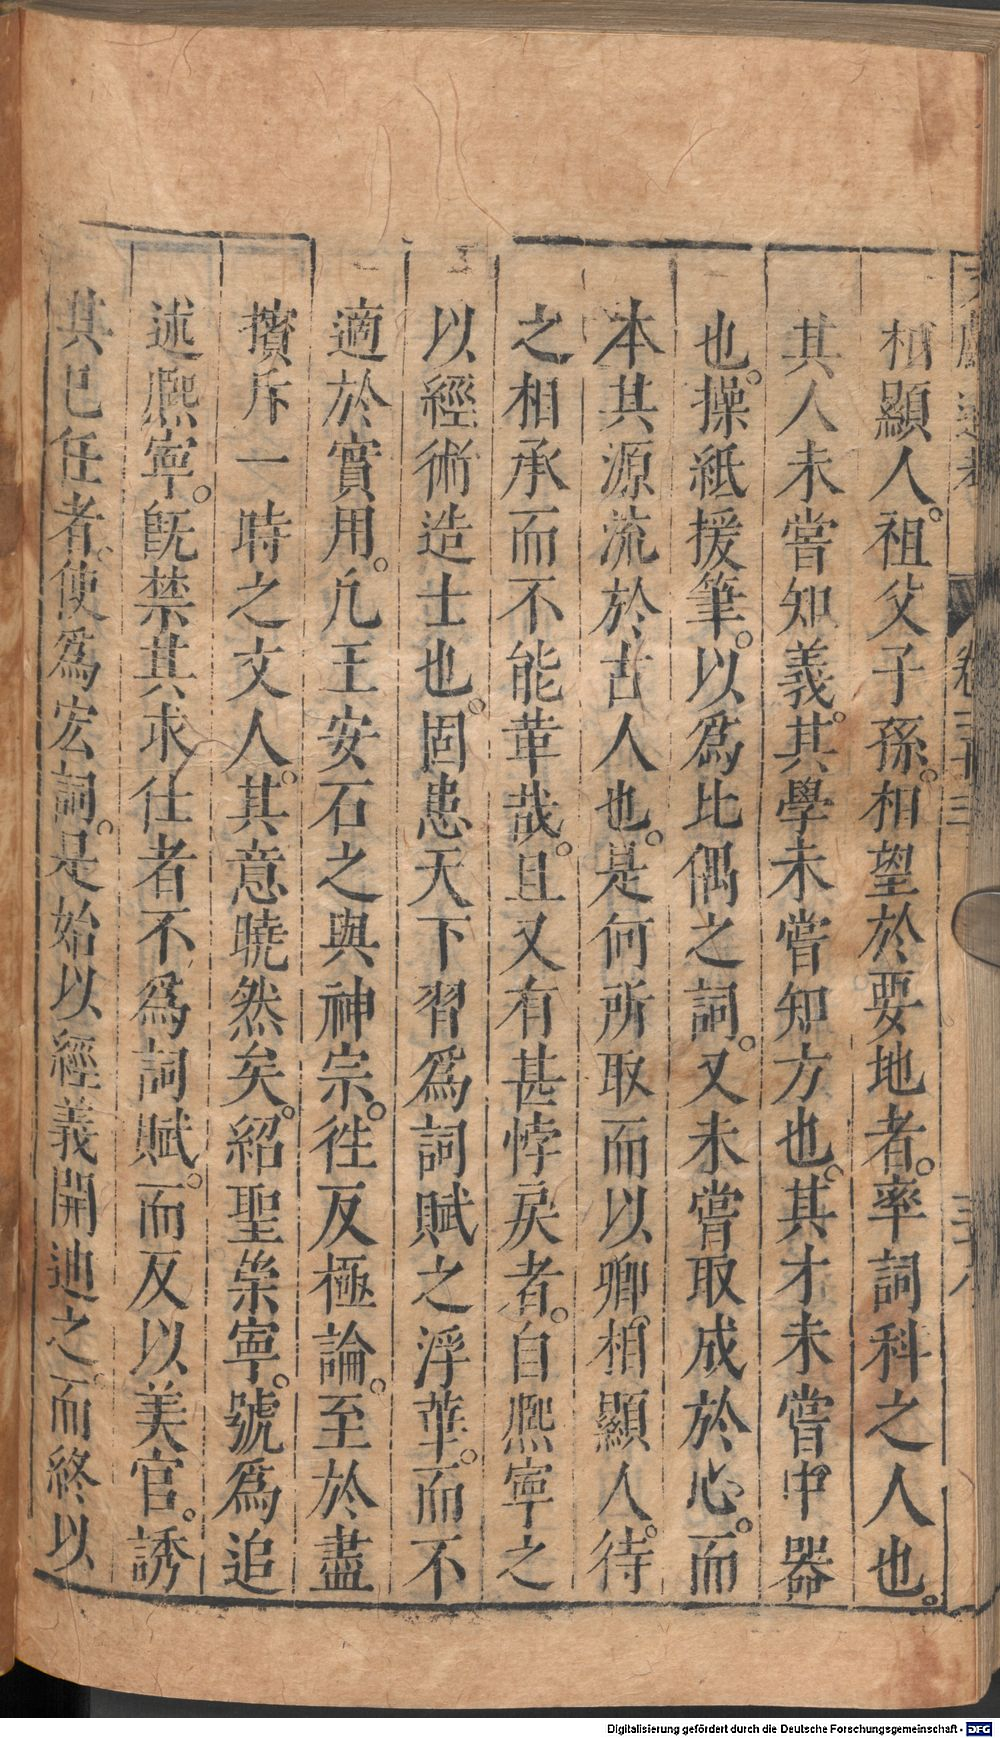 相顯人。祖父子孫。相望於要地者。率詞科之人也。
其人未嘗知義。其學未嘗知方也。其才未嘗中器
也。操紙援筆。以爲比偶之詞。又未嘗取成於心。而
本其源流於古人也。是何所取而以卿。相顯人。待
之相承而不能革哉。且又有甚悖戾者。自熈寧之
以經術造士也。固患天下習爲詞賦之浮華。而不
適於實用。凡王安石之與神宗。徃反極論。至於盡
擯斥一時之文人。其意曉然矣。紹聖崇寧。號爲追
述熈寧。旣禁其求仕者不爲詞賦。而反以美官。誘
其已任者。使爲宏詞。是始以經義開迪之。而終以
Digitalisierung gefördert durch die Deutsche Forschungsgemeinschaft - DFG